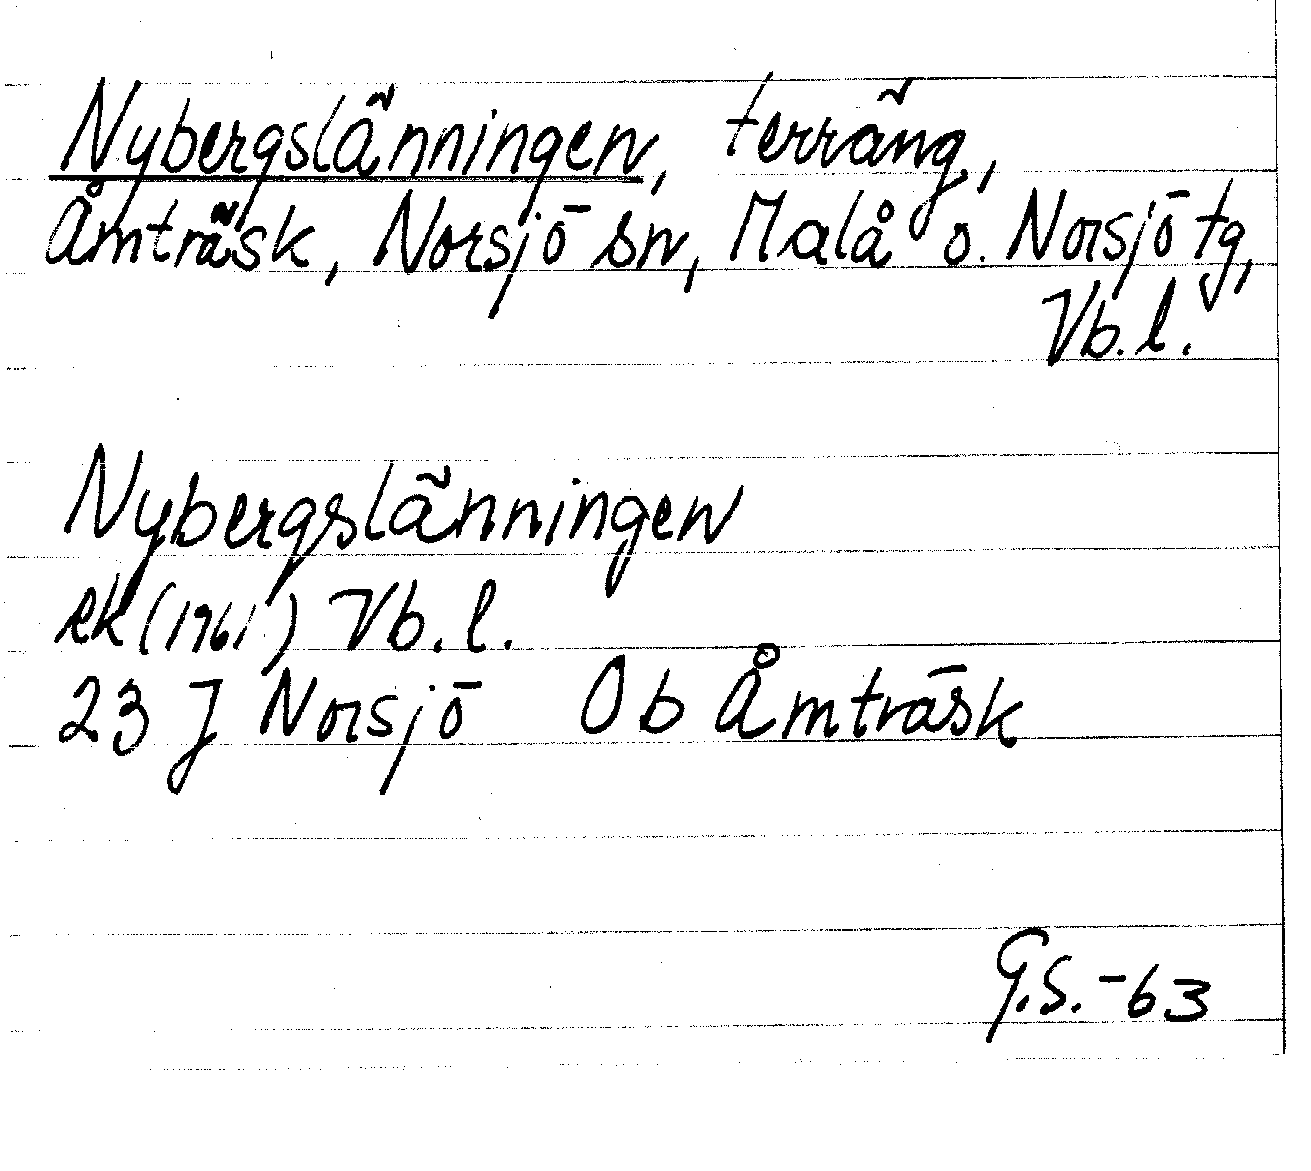 Nybergslänningen, terräng,
Åmträsk, Norsjö sn, Malå o. Norsjö tg,
Vb.l.
Nybergslänningen
ek (1961) Vb.l.
23 J Norsjö 0b Åmträsk
G.S.-63